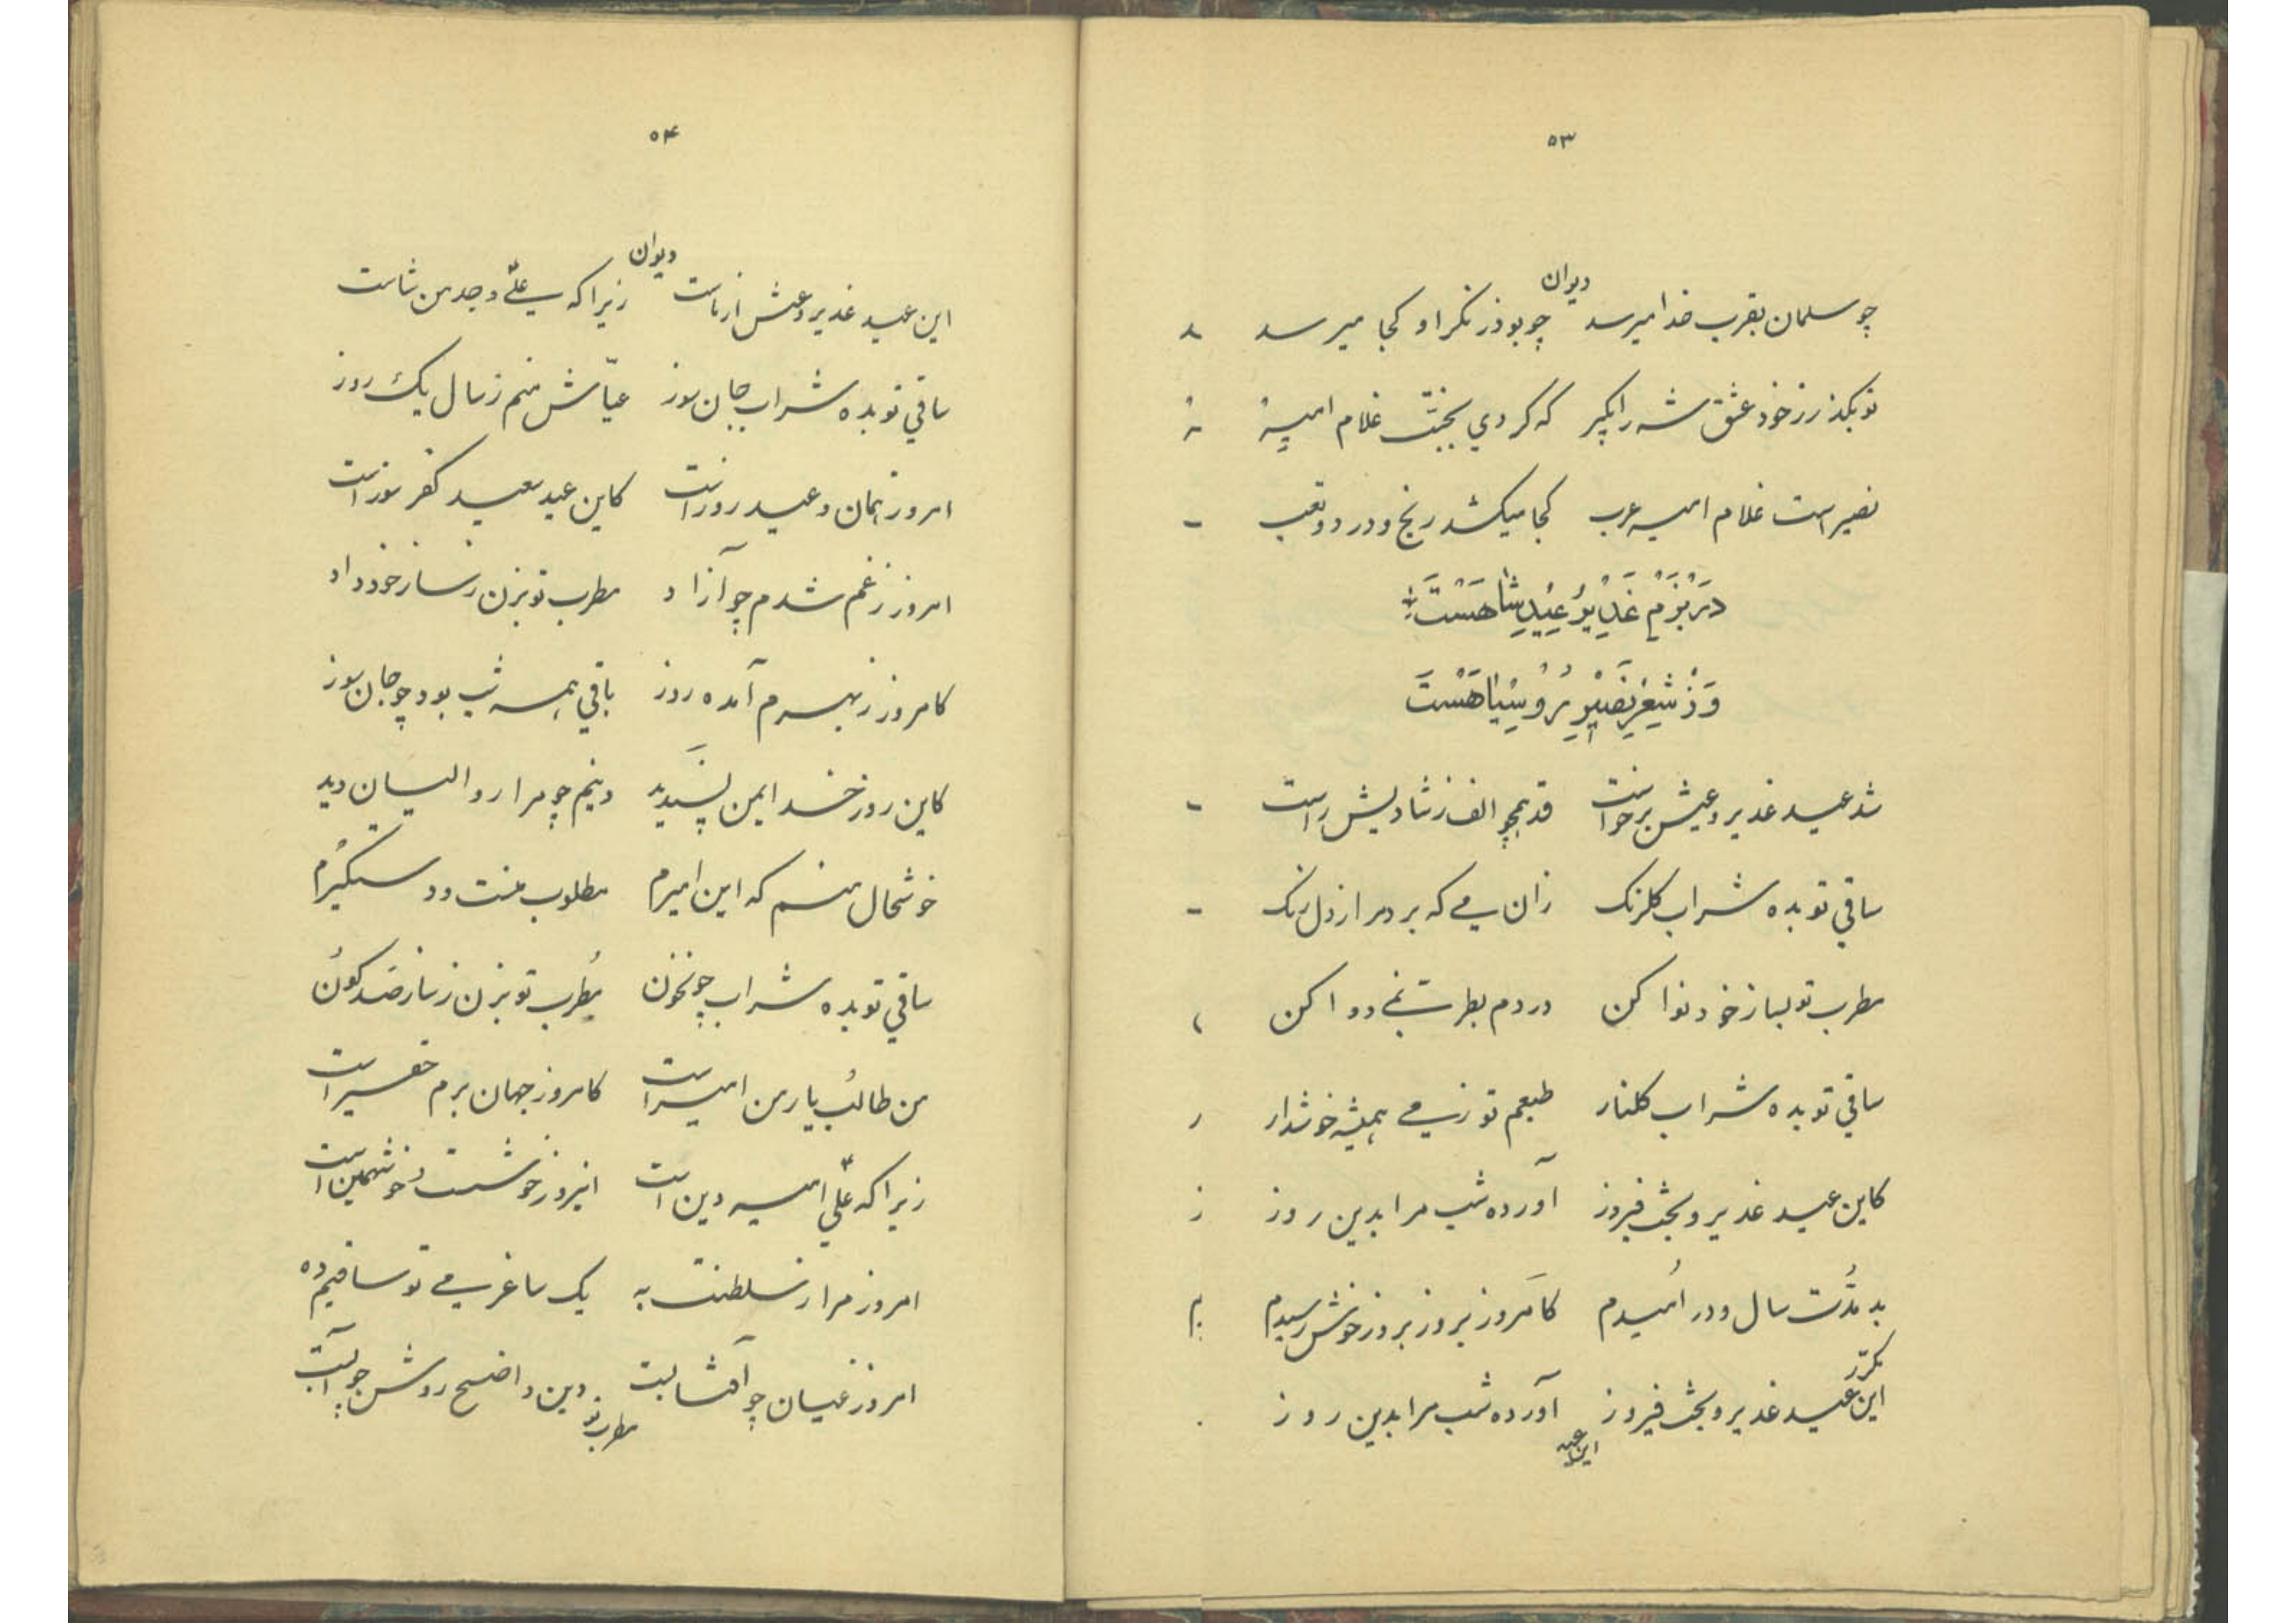 ۵۳
دیوان
چو سلمان بقرب خدا میرسد چو بوذر نکر او کجا میرسد
تو بکذر ز خود عشق شه را بکیر که کردي بجنّت غلام امیر
نصیر است غلام امیر عرب کجا میکشد رنج و درد و تعب
دَر بَزْمِ غَدِیْرُ عِیْدِ شاه هَسْتَ
وَذْ شِعْرِ نَصِیْرِ رُوْسِیٰاه هَسْتَ
شد عید غدیر و عیش برخواست قد همچو الف ز شادیش راست
ساقي تو بده شراب کلرنک زان می که برد مرا ز دل زنک
مطرب تو بساز خود نوا کن دردم بطرب نمی دوا کن
ساقي تو بده شراب کلنار طبعم تو ز می همیشه خوشدار
کاین عید غدیر و بخت فیروز آورده شب مرا بدین روز
بد مدُّت سال و در اُمیدم کامروز بروز خوش رسیدم
مکرّر
این عید غدیر و بخت فیروز آورده شب مرا بدین روز
این عید
۵۴
دیوان
این عید غدیر و عیش از ماست زیرا که علي و جد من شاست
ساقي تو بده شراب جان سوز عیّاش منم ز سال یک روز
امروز همان وعید روز است کاین عید سعید کفر سوز است
امروز ز غم شدم چو آزاد مطرب تو بزن ز ساز خود داد
کامروز ز بهرم آمده روز باقي همه شب بود چو جان سوز
کاین روز خدا بمن پسندید دینم چو مرا روا لسیان دید
خوشحال منم که این امیرم مطلوب منست و دستکیرم
ساقي تو بده شراب چونخون مُطرب تو بزن ز ساز صد کون
من طالب یار من امیر است کامروز جهان برم حقیر است
زیرا که علي امیر دین است اینروز خوشست و خوشهمین است
امروز مرا ز سلطنت به یک ساغر می تو ساقیم ده
امروز عیان چو آفتابست دین واضح روشن چو آبست
مطرب تو